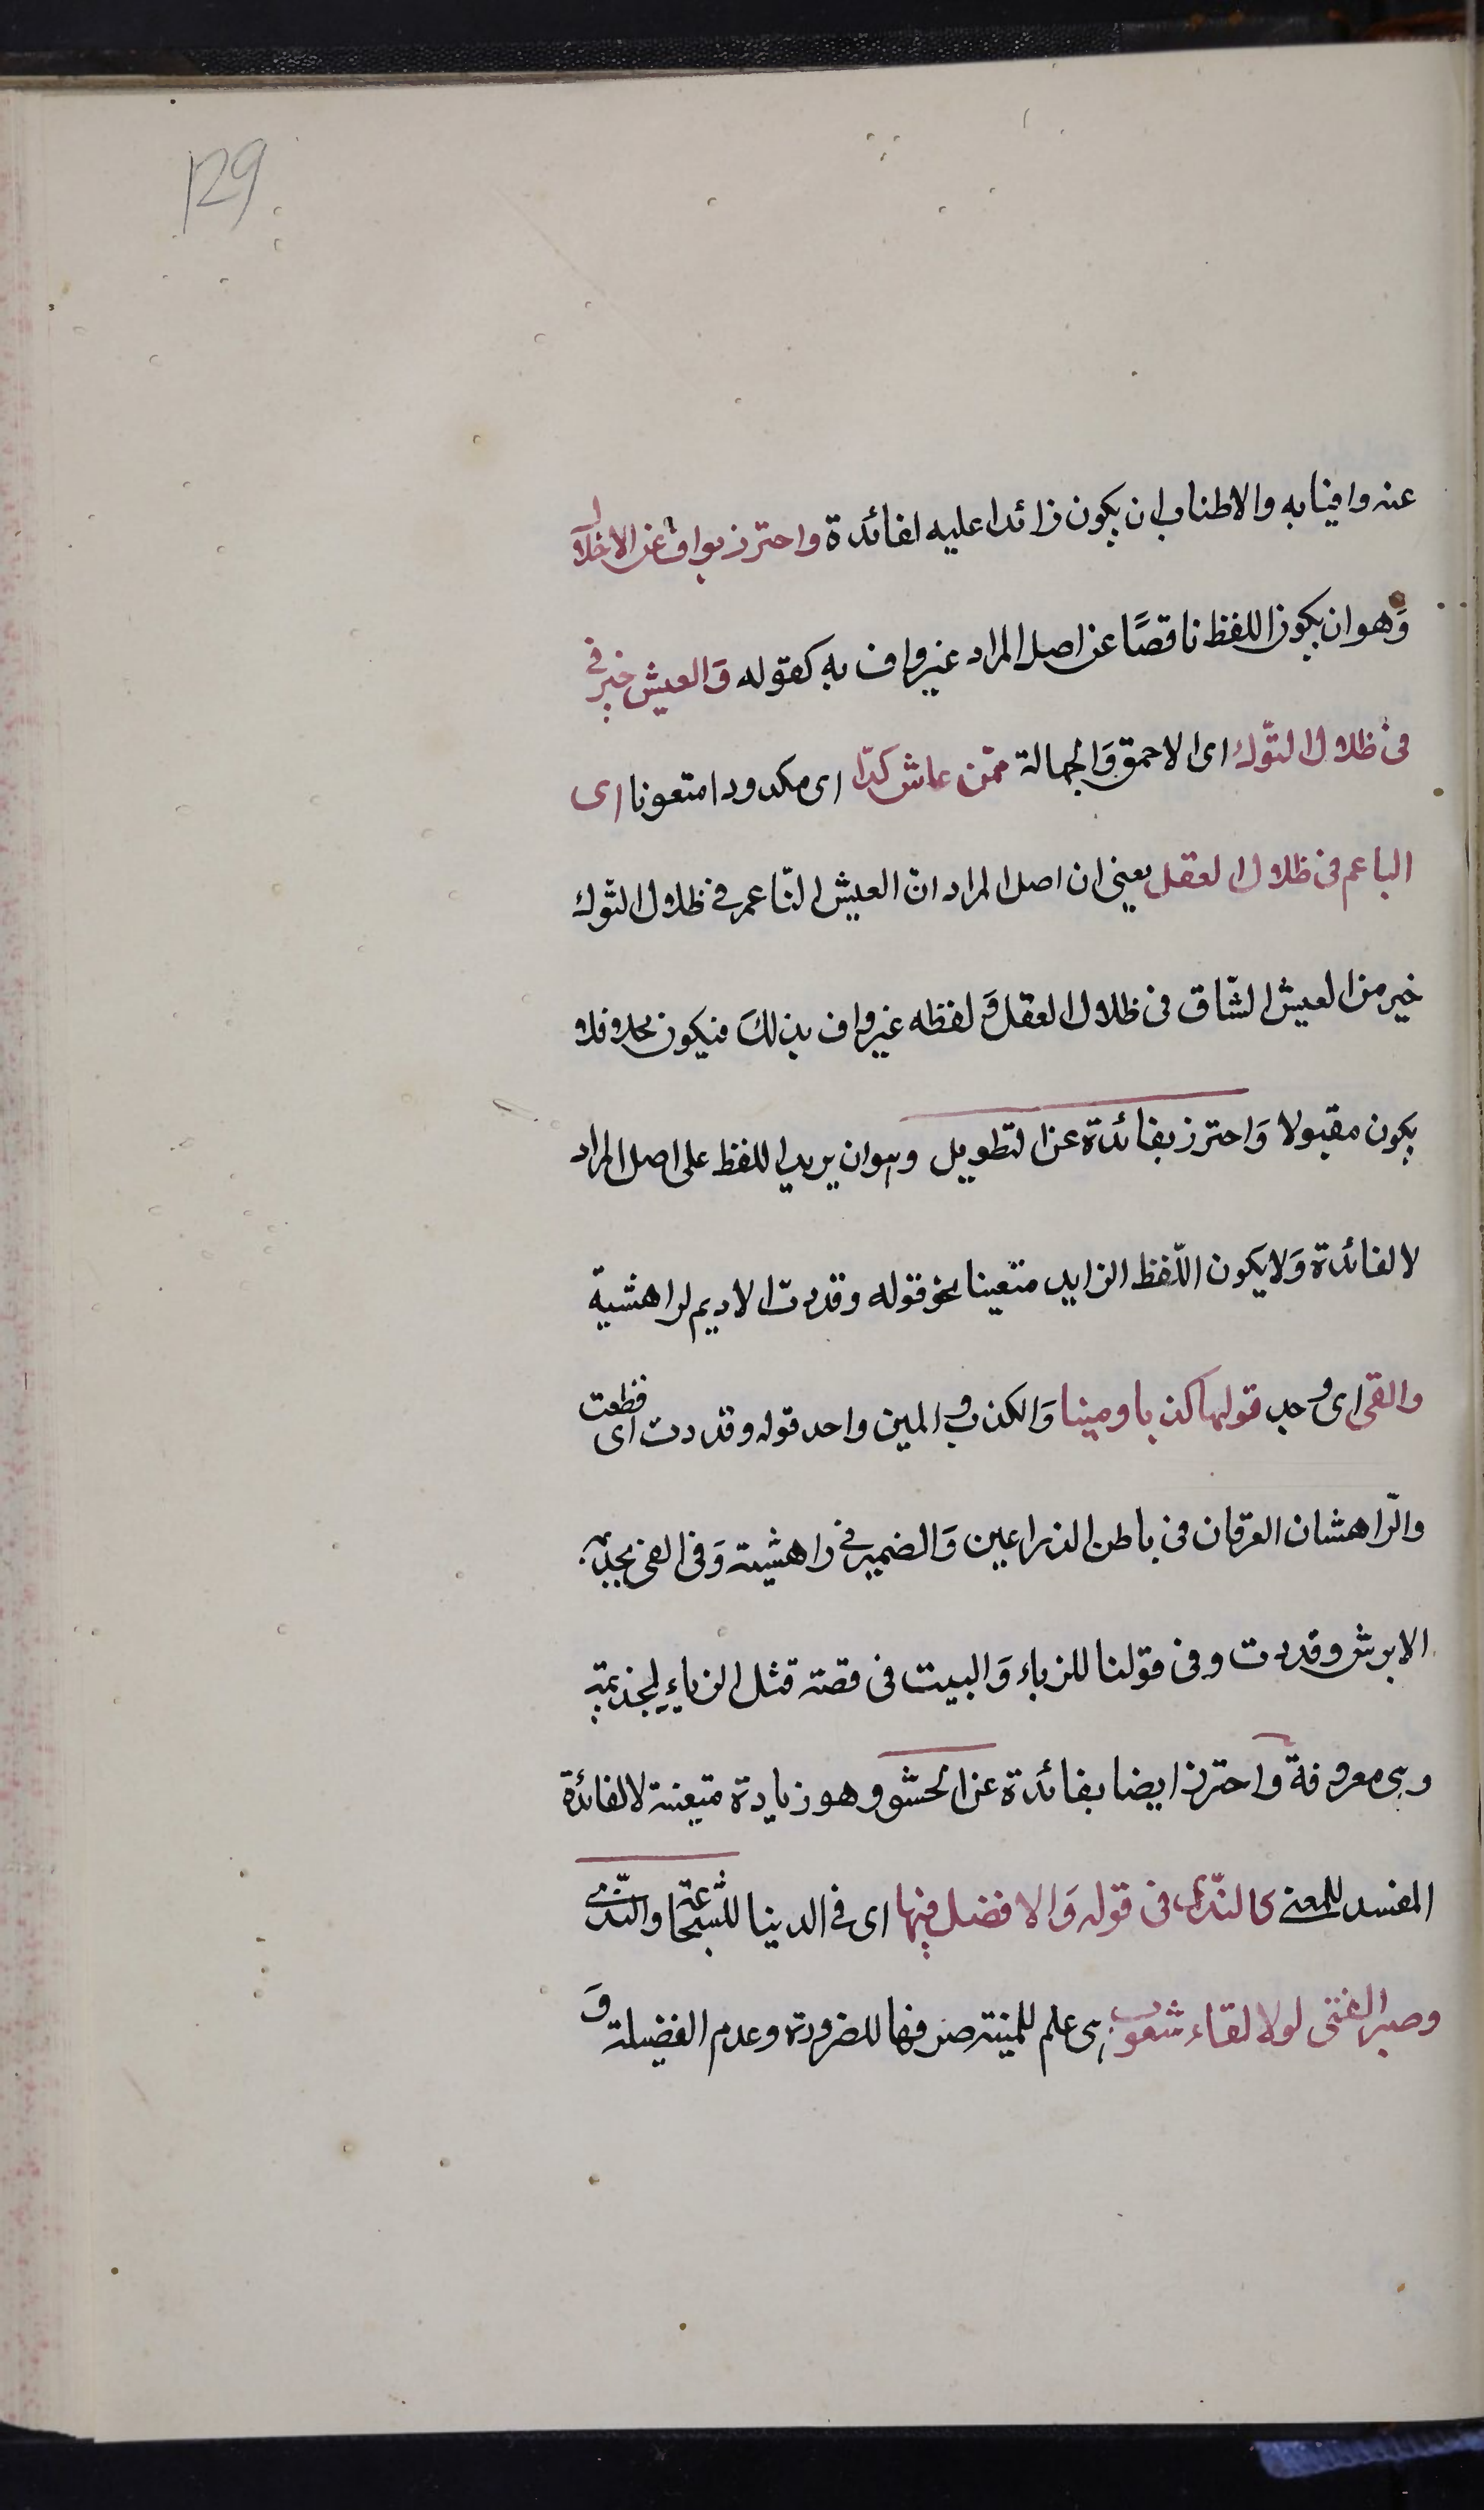 129
عنه وافيا به والاطناب ان يكون زائدا عليه لفائدة واحترز بواف عن الاخلال
وهو ان يكون اللفظ ناقصًا عن اصل المراد غير واف به كقوله وَالعيش خير في
فى ظلال النّوك اى الاحمق وَالجهالة ممّن عاش كدّا اى مكدودا متعونا اى
الناعم فى ظلال العقل يعنى ان اصل المراد انّ العيش النّاعم فى ظلال النّوك
خير من العيش الشّاق فى ظلال العقل وَ لفظه غير واف بذلك فيكون مخلا فلا
يكون مقبولا وَاحترز بفائدة عن التّطويل وهو ان يريد اللفظ على اصل المراد
لا لفائدة وَلا يكون اللّفظ الزايد متعينا نحو قوله وقددت الاديم لراهشيه
والفى اى وجد قولها كذبا ومينا وَالكذب والمين واحد قوله وقددت اى قطعت
والرّاهشان العرقان فى باطن الذراعين وَالضمير فى راهشيه وَفى الفى لجذيمة
الابرش وقددت وفى قولنا للزباء وَالبيت فى قصة قتل الزباء لجذيمة
وهى معروفة واحترز ايضا بفائدة عن الحشو وهو زيادة متعينة لا لفائدة
المفسد للمعنى كالنّدى فى قوله وَالا فضل فيها اى فى الدينا للشّجاعة والنّدى
وصبر الفتى لولا لقاء شعوب هى علم للمنية صرفها للضرورة وعدم الفضيلة وَ